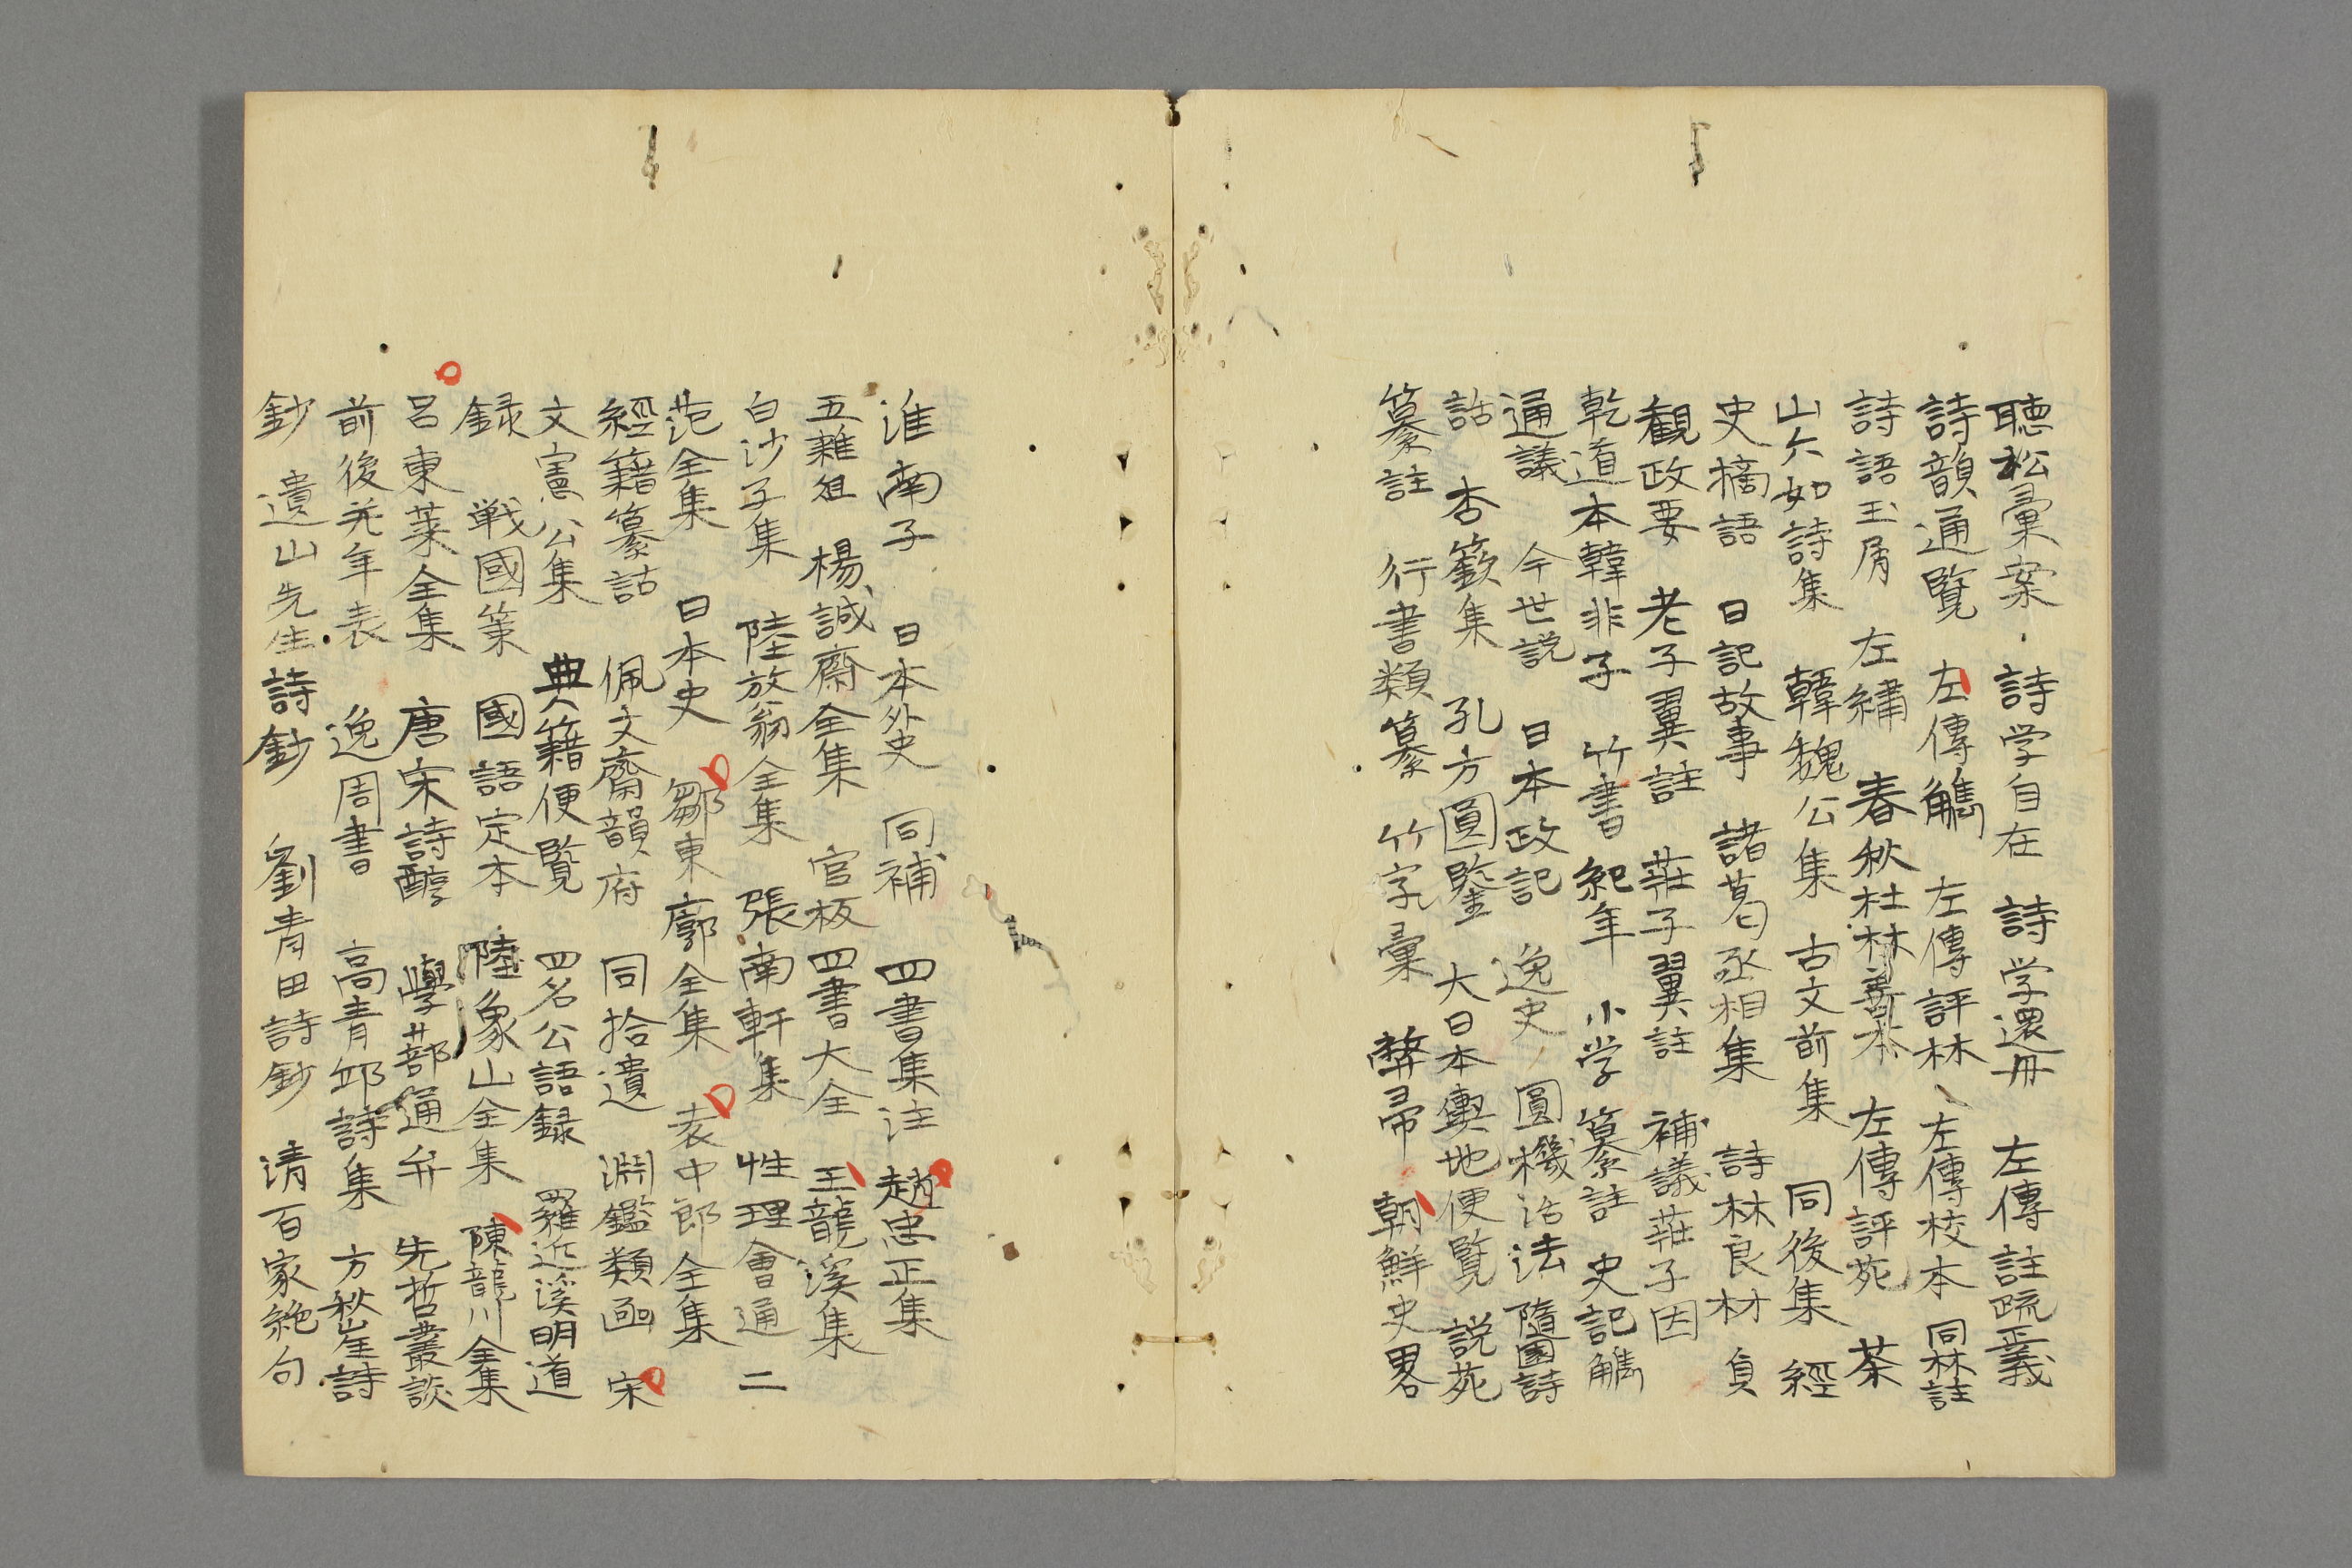 聴松彙案 詩学自在 詩学還丹 左傳註疏正義
詩韻通覧 左傳觿 左傳評林 左傳校本 同林註
詩語玉屑 左繡 春秋杜林善本 左傳評苑 茶
山六如詩集 韓魏公集 古文前集 同後集 經
史摘語 日記故事 諸葛丞相集 詩林良材 貞
観政要 老子翼註 荘子翼註 補議荘子因
乾道本韓非子 竹書紀年 小学纂註 史記觿
通議 今世説 日本政記 逸史 圓機活法 隨園詩
話 杏籔集 孔方圓鑒 大日本輿地便覧 説苑
纂註 行書類纂 竹字彙 弊帚 朝鮮史畧
淮南子 日本外史 同補 四書集注 趙忠正集
五雜俎 楊誠齋全集 官板四書大全 王龍溪集
白沙子集 陸放翁全集 張南軒集 性理會通 二
范全集 日本史 鄒東廓全集 袁中郎全集
經籍纂詁 佩文齋韻府 同拾遺 淵鑑類凾 宋
文憲公集 典籍便覧 四名公語録 羅近溪明道
録 戦國策 國語定本 陸象山全集 陳龍川全集
呂東莱全集 唐宋詩醇 學蔀通弁 先哲叢談
前後羌年表 逸周書 高青邱詩集 方秋崖詩
鈔 遺山先生詩鈔 劉青田詩鈔 清百家絶句